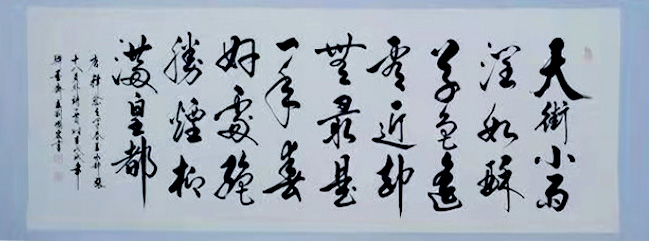 天街小雨
潤如酥
草色遙
看近却
無最是
一年春
好處絕
勝煙柳
滿皇都
十八員外詩